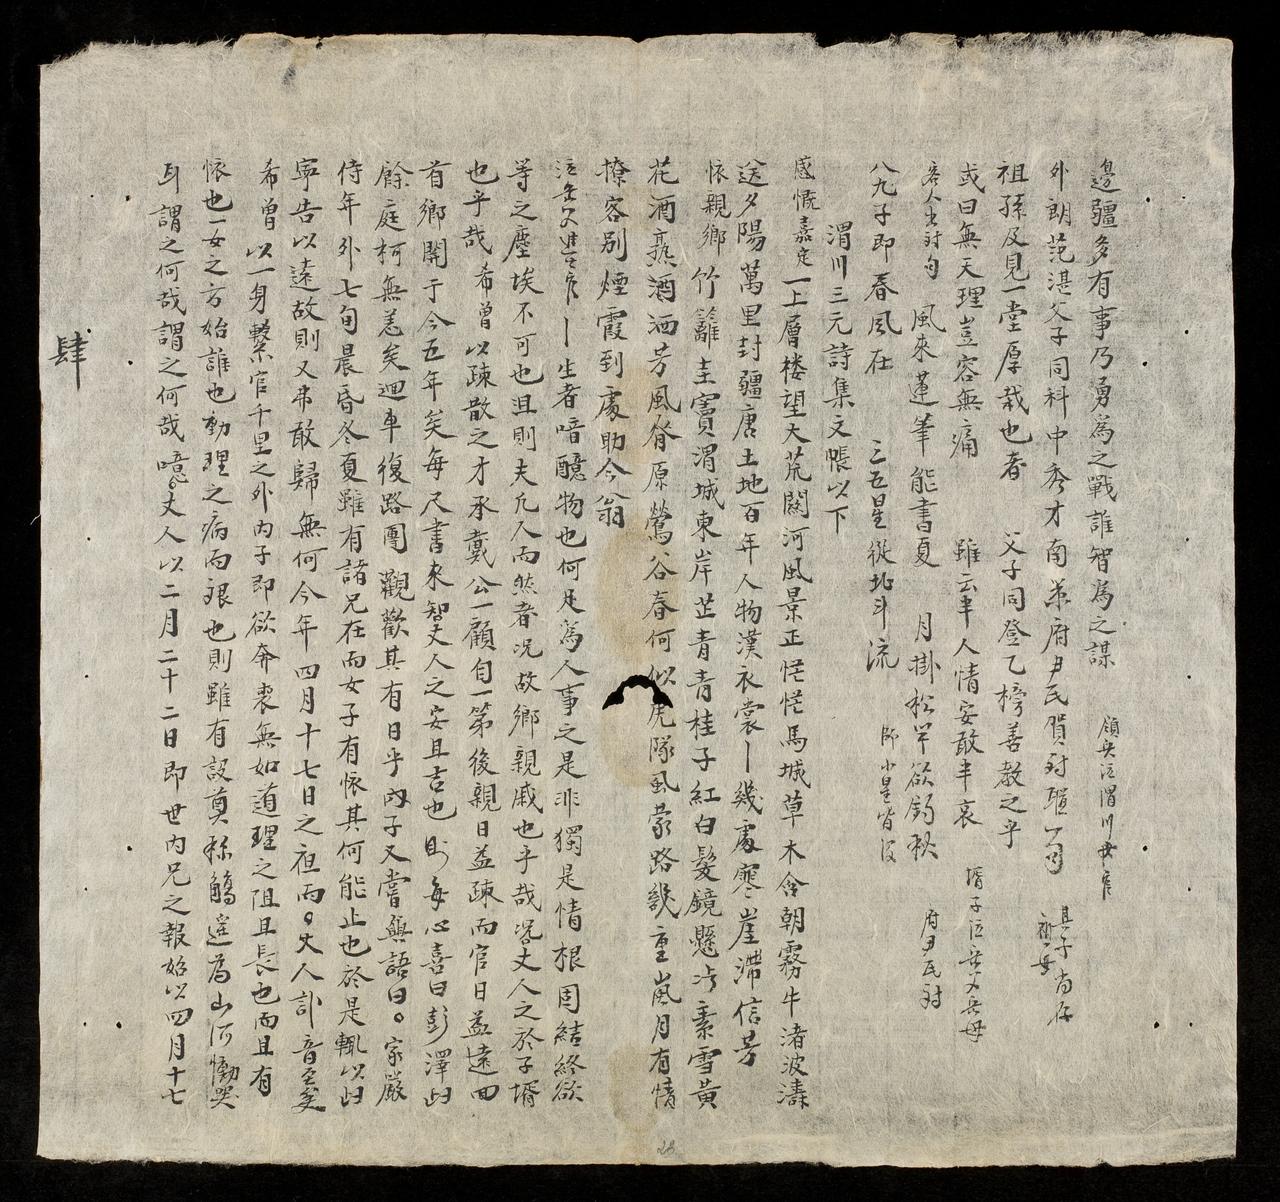 邊疆多有事乃勇為之戰誰智為之謀
外朗范湛父子同科中秀才南策府尹民賀對聯一首 其子尚存
祖孫及見一堂厚栽也者 父子同登乙榜善教之乎
或曰無天理豈容無痛 雖云半人情安敢半哀
客人出對句 風來蓬筆能書夏 月掛松竿欲釣秋 府尹民對
八九子即春風在 三五星從北斗流
渭川三元詩集文帳以下
感慨嘉定一上層楼望大荒關河風景正茫茫馬城草木含朝霧牛渚波濤
送夕陽萬里封疆唐土地百年人物漢衣裳 幾處寒崖滯信芳
懷親鄉竹籬圭竇渭城東岸芷青青桂子紅白髮鏡懸 素雪黃
花酒熟酒洒芳風脊原鶯谷春何似虎隊風雲路幾重嵐月有情
撩客別煙霞到處助今翁
生者喑醷物也何足為人事之是非獨是情根固結終欲
等之塵埃不可也沮則夫凡人而然者况故鄉親戚也乎哉况丈人之於子壻
也乎哉 希曾以疎散之才承戴公一顧自一第後親日益疎而官日益遠回
首鄉關于今五年矣每尺書來智丈人之安且吉也 則每心喜曰彭澤歸
餘庭柯無恙矣廻車復路團觀歡其有日乎内子又嘗與語曰家嚴
侍年外七旬晨昏冬夏雖有諸兄在而女子有怀其何能止也於是輒以歸
寧告以遠故則又弗敢歸無何今年四月十七日之夜而丈人訃音至矣
希曾以一身繫官千里之外内子即欲奔喪無如道理之阻且長也而且有
怀也一女之方始誰也動理之病而 也則雖有設奠稱觴遙為山河慟哭
耳謂之何哉謂之何哉噫丈人以二月二十二日即世内兄之報始以四月十七
肆